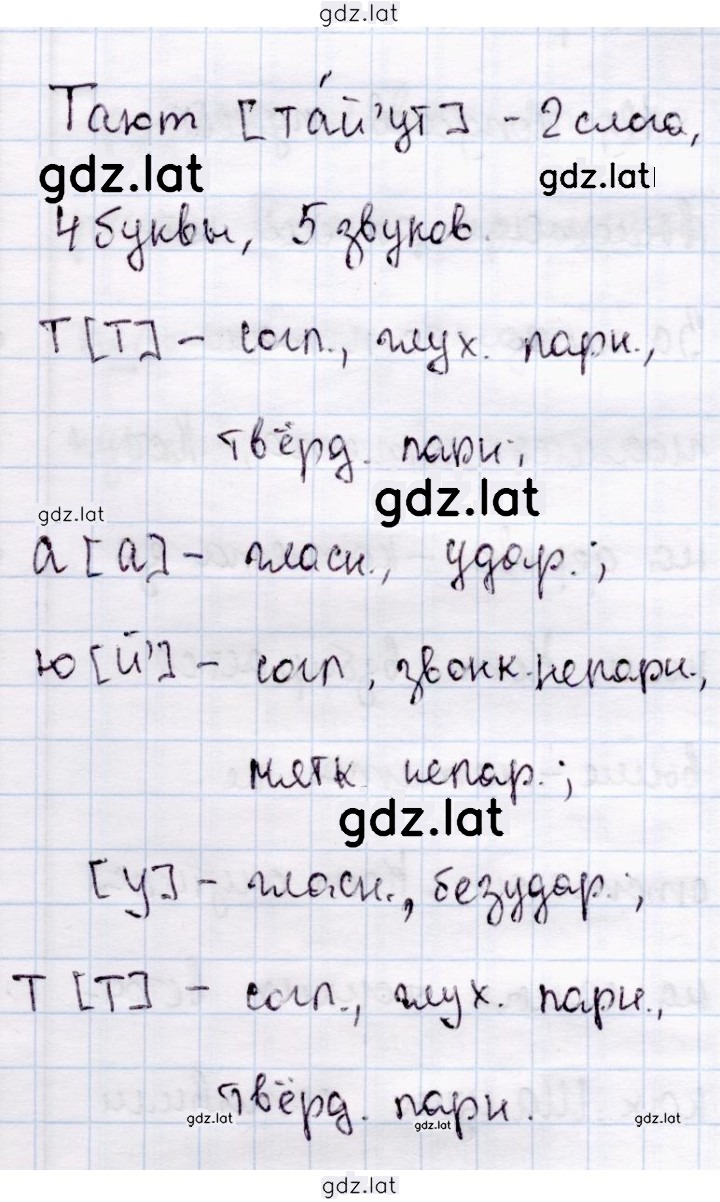 gdz.lat
Тают [та́й'ут] - 2 слога,
gdz.lat gdz.lat
4 буквы, 5 звуков.
т [т] - согл., глух. парн.,
твёрд. парн.;
gdz.lat gdz.lat
а [а] - гласн., удар.;
ю [й'] - согл., звонк. непарн.,
мягк. непар.;
gdz.lat
[у] - гласн., безудар.;
т [т] - согл., глух. парн.,
твёрд. парн.
gdz.lat gdz.lat gdz.lat
gdz.lat